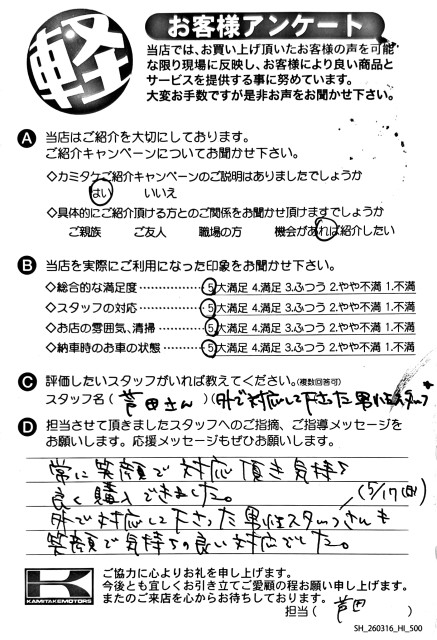 軽
お客様アンケート
当店では、お買い上げ頂いたお客様の声を可能
な限り現場に反映し、お客様により良い商品と
サービスを提供する事に努めています。
大変お手数ですが是非お声をお聞かせ下さい。
A 当店はご紹介を大切にしております。
ご紹介キャンペーンについてお聞かせ下さい。
◇カミタケご紹介キャンペーンのご説明はありましたでしょうか
はい いいえ
◇具体的にご紹介頂ける方とのご関係をお聞かせ頂けますでしょうか
ご親族 ご友人 職場の方 機会があれば紹介したい
B 当店を実際にご利用になった印象をお聞かせ下さい。
◇総合的な満足度 ⋯⋯⋯⋯ 5大満足 4.満足 3.ふつう 2.やや不満 1.不満
◇スタッフの対応 ⋯⋯⋯⋯ 5大満足 4.満足 3.ふつう 2.やや不満 1.不満
◇お店の雰囲気、清掃 ⋯⋯⋯ 5大満足 4.満足 3.ふつう 2.やや不満 1.不満
◇納車時のお車の状態 ⋯⋯⋯ 5大満足 4.満足 3.ふつう 2.やや不満 1.不満
C 評価したいスタッフがいれば教えてください。(複数回答可)
スタッフ名 ( 芦田さん )(外で対応して下さった男性スタッフ
D 担当させて頂きましたスタッフへのご指摘、ご指導メッセージを
お願いします。応援メッセージもぜひお願いします。
常に笑顔で対応頂き気持ち
良く購入できました。 (5/17(日)
外で対応して下さった男性スタッフさんも
笑顔で気持ちの良い対応でした。
K
KAMITAKEMOTORS
ご協力に心よりお礼を申し上げます。
今後とも宜しくお引き立てご愛顧の程お願い申し上げます。
またのご来店を心からお待ちしております。
担当 ( 芦田 )
SH_260316_HI_500